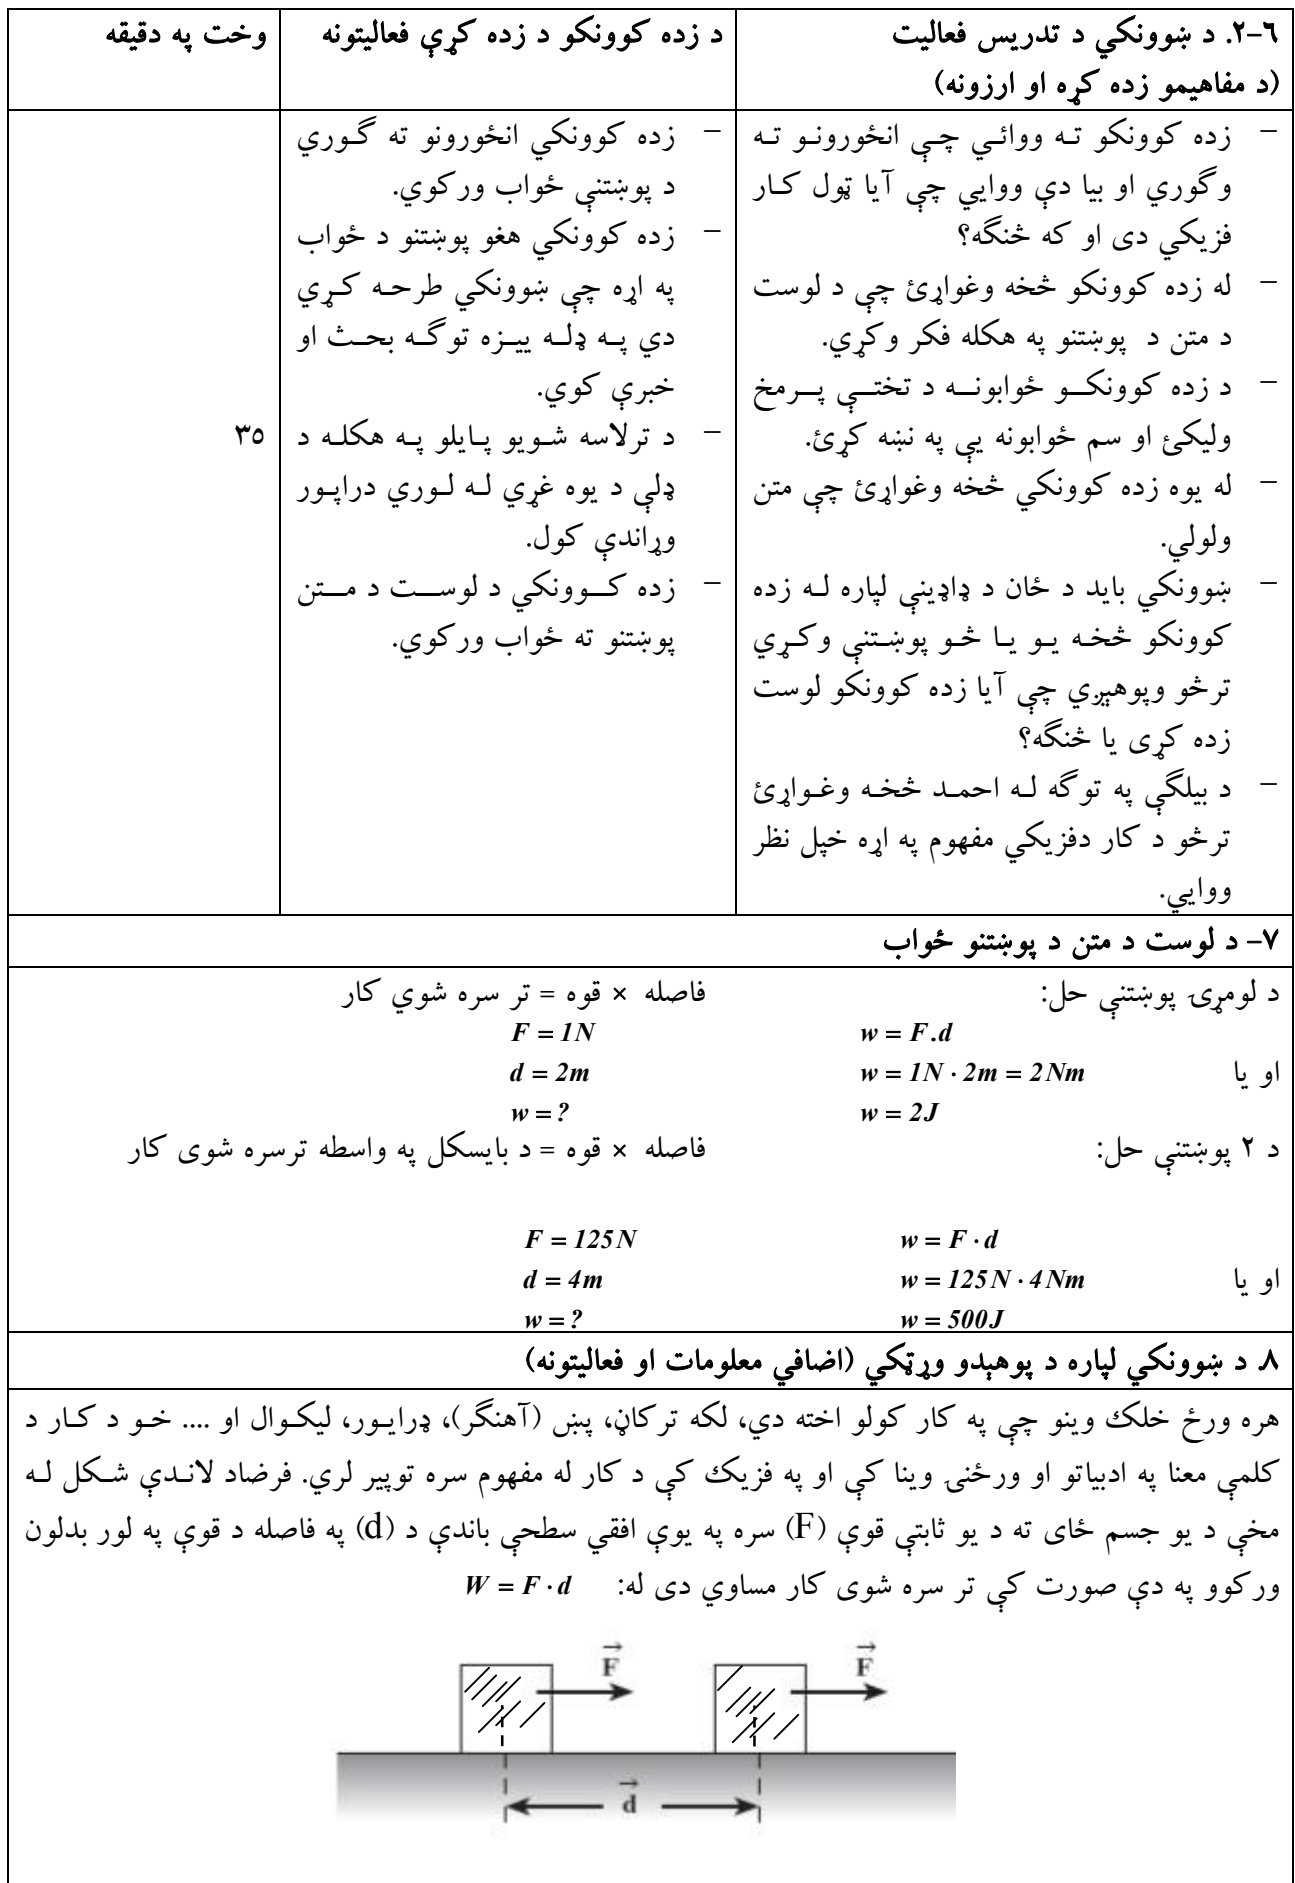 ۲-٦. د ښوونکي د تدریس فعالیت
(د مفاهیمو زده کړه او ارزونه)
د زده کوونکو د زده کړې فعالیتونه
وخت په دقیقه
– زده کوونکو ته ووائي چې انځورونو ته
وگوري او بیا دې ووایي چې آیا ټول کار
فزیکي دی او که څنگه؟
– له زده کوونکو څخه وغواړئ چې د لوست
د متن د پوښتنو په هکله فکر وکړي.
– د زده کوونکو ځوابونه د تختې پرمخ
ولیکئ او سم ځوابونه یې په نښه کړئ.
– له یوه زده کوونکي څخه وغواړئ چې متن
ولولي.
– ښوونکي باید د ځان د ډاډینې لپاره له زده
کوونکو څخه یو یا څو پوښتنې وکړي
ترڅو وپوهېږي چې آیا زده کوونکو لوست
زده کړی یا څنگه؟
– د بیلگې په توگه له احمد څخه وغواړئ
ترڅو د کار دفزیکي مفهوم په اړه خپل نظر
ووایي.
– زده کوونکي انځورونو ته گوري
د پوښتنې ځواب ورکوي.
– زده کوونکي هغو پوښتنو د ځواب
په اړه چې ښوونکي طرحه کړي
دي په ډله ییزه توگه بحث او
خبرې کوي.
– د ترلاسه شویو پایلو په هکله د
ډلې د یوه غړي له لوري دراپور
وړاندې کول.
– زده کوونکي د لوست د متن
پوښتنو ته ځواب ورکوي.
۳۵
۷- د لوست د متن د پوښتنو ځواب
د لومړۍ پوښتنې حل: فاصله × قوه = تر سره شوي کار
F = 1N w = F.d
او یا d = 2m w = 1N · 2m = 2Nm
w = ? w = 2J
د ۲ پوښتنې حل: فاصله × قوه = د بایسکل په واسطه ترسره شوی کار
F = 125N w = F · d
او یا d = 4m w = 125N · 4Nm
w = ? w = 500J
۸. د ښوونکي لپاره د پوهېدو وړټکي (اضافي معلومات او فعالیتونه)
هره ورځ خلک وینو چې په کار کولو اخته دي، لکه ترکاڼ، پښ (آهنگر)، ډرایور، لیکوال او .... خو د کار د
کلمې معنا په ادبیاتو او ورځنۍ وینا کې او په فزیک کې د کار له مفهوم سره توپیر لري. فرضاد لاندې شکل له
مخې د یو جسم ځای ته د یو ثابتې قوې (F) سره په یوې افقي سطحې باندې د (d) په فاصله د قوې په لور بدلون
ورکوو په دې صورت کې تر سره شوی کار مساوي دی له: W = F · d
F F
d